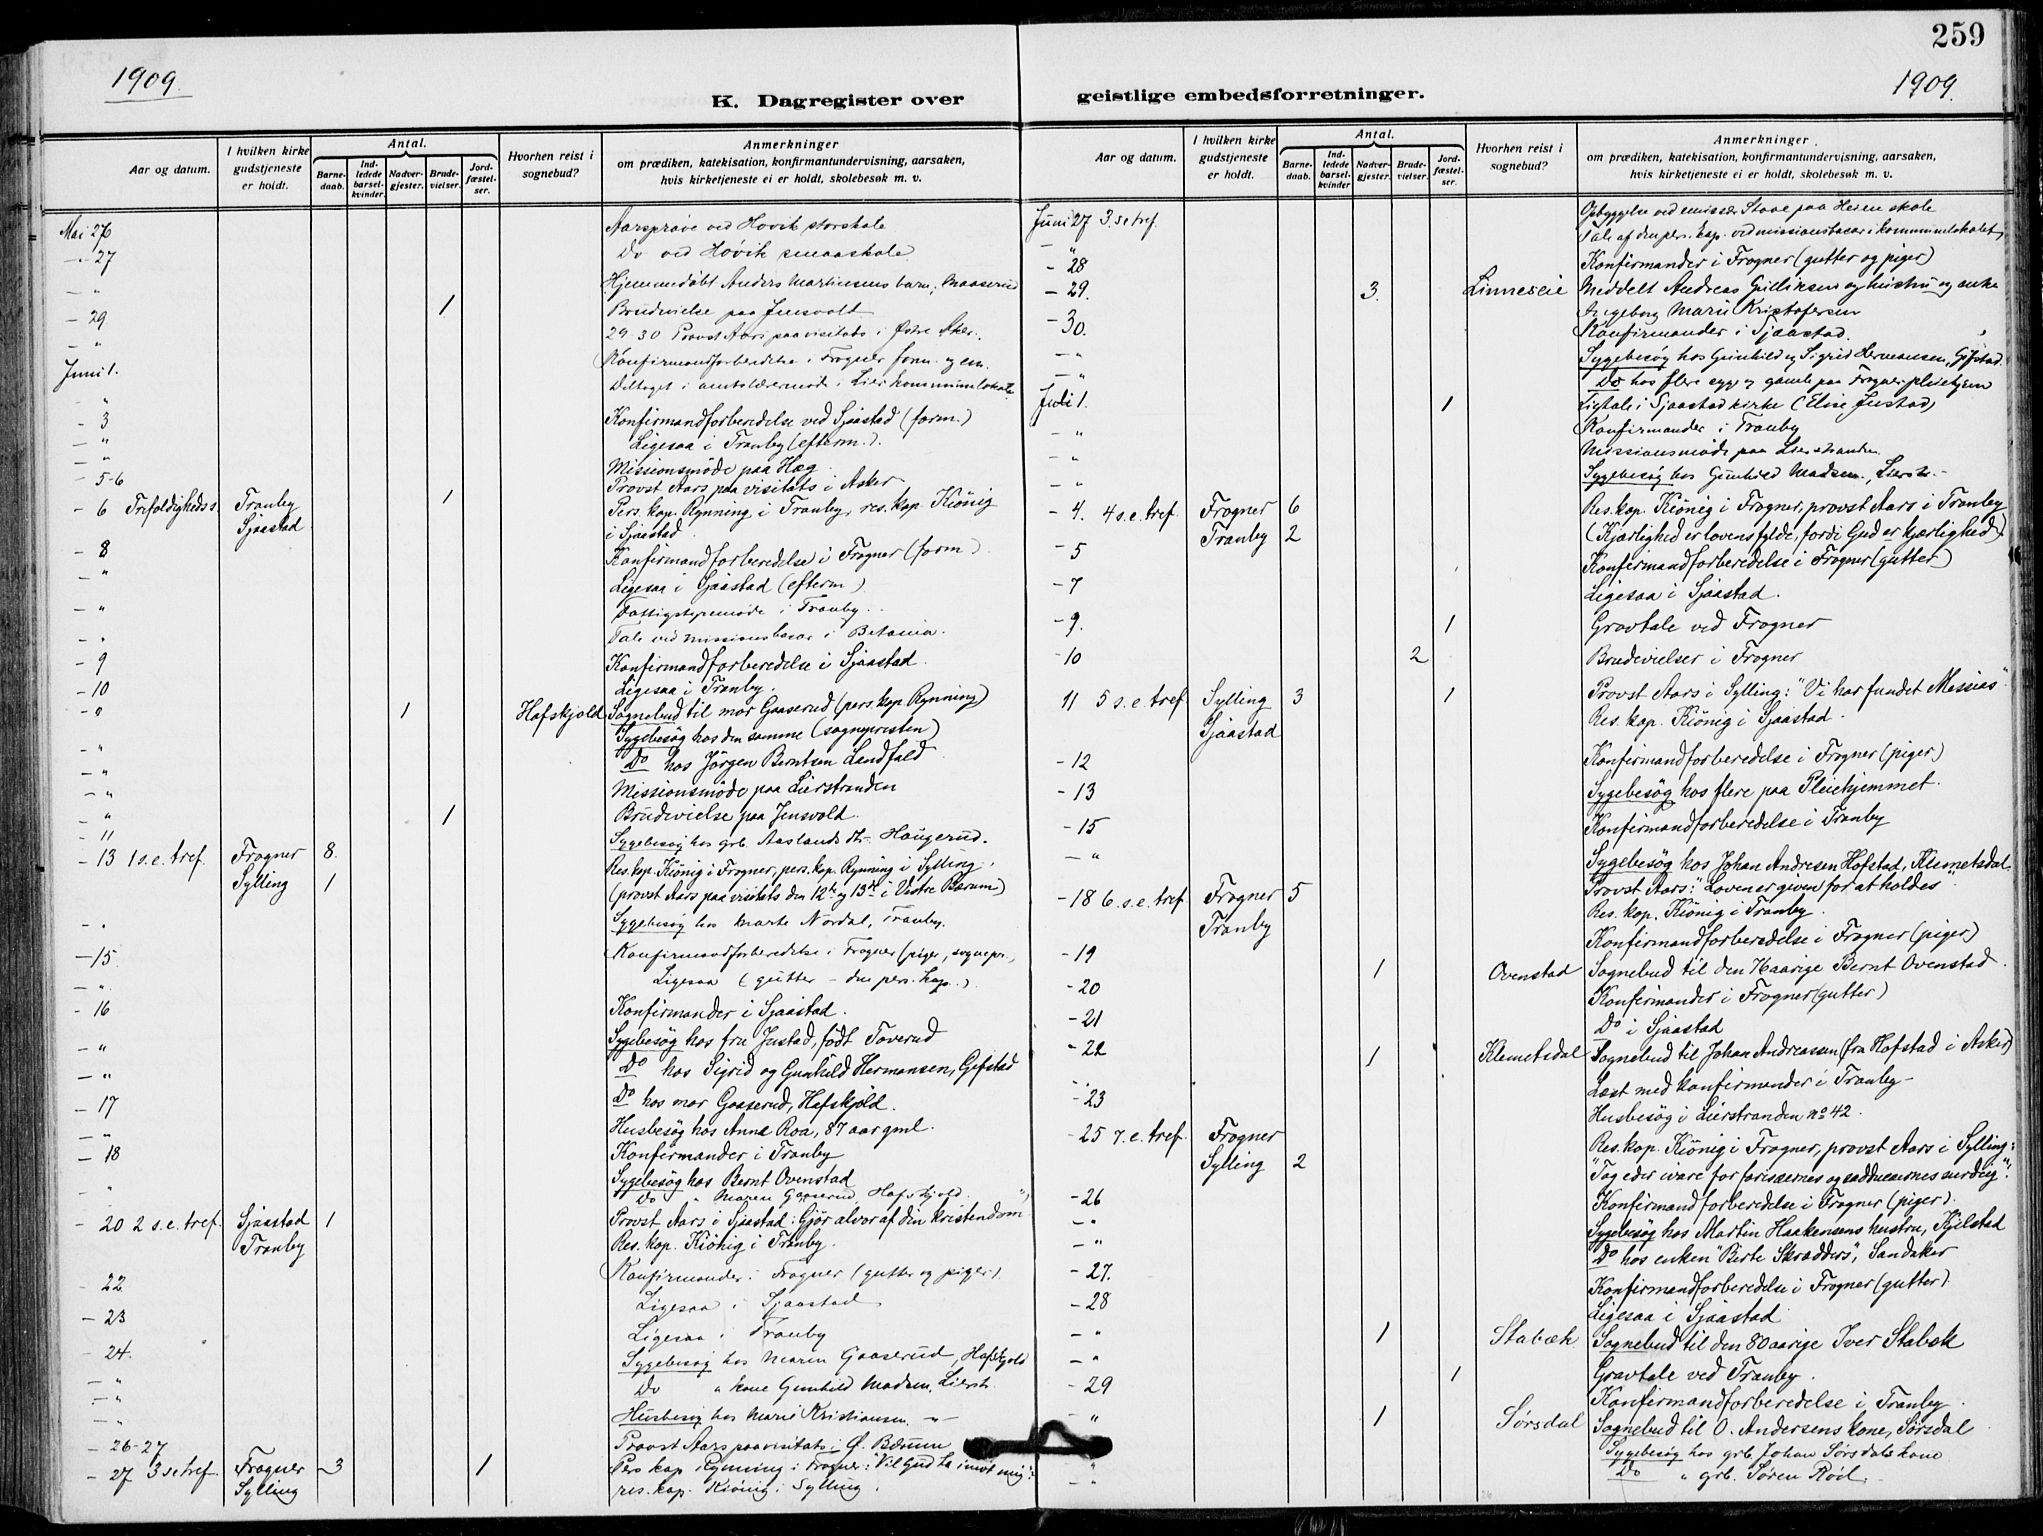 259
1909.
1909.
K. Dagregister over geistlige embedsforretninger.
Aar og datum.
I hvilken kirke gudstjeneste er holdt.
Antal.
Barnedaab.
Indledede barselkvinder.
Nadvergjester.
Brudevielser.
Jordfæstelser.
Hvorhen reist i sognebud?
Anmerkninger
om prædiken, katekisation, konfirmantundervisning, aarsaken,
hvis kirketjeneste ei er holdt, skolebesøk m. v.
Mai 26 Aarsprøve ved Høvik storskole
- " 27 Do ved Høvik smaaskole
- " Hjemmedøbt Anders Martinsens barn, Maaserud
- 29 1 Brudevielse paa Jensvold
- " 29 30 Provst Aars paa visitats i Østre Aker.
Juni 1. Konfirmandforberedelse i Frogner form. og em.
" Deltaget i amtslærermøde i Lier kommunelokale
- 3 Konfirmandforberedelse ved Sjaastad (form.)
- " Ligesaa i Tranby (efterm.).
- " Missionsmøde paa Hæg
- 5-6 Provst Aars paa visitats i Asker
- 6 Trefoldigheds s. Tranby 1 Pers. kap. Rynning i Tranby, res. kap. Kiønig
Sjaastad i Sjaastad
- 8 Konfirmandforberedelse i Frogner (form)
- " Ligesaa i Sjaastad (efterm)
- " Fattigstyremøde i Tranby.
- " Tale ved missionsbasar i Betania.
- 9 Konfirmandforberedelse i Sjaastad.
- 10 Ligesaa i Tranby.
- " 1 Hafskjold Sognebud til mor Gaaserud (pers. kap. Rynning)
- " Sygebesøg hos den samme (sognepresten)
- " Do hos Jørgen Berntsen Landfald
- " Missionsmøde paa Lierstranden
- " 1 Brudevielse paa Jensvold
- 11 Sygebesøg hos grb. Aaslands dtr. Haugerud.
- 13 1 s.e. tref. Frogner 8. Res. kap. Kiønig i Frogner, pers. kap. Rynning i Sylling.
Sylling 1 (provst Aars paa visitats den 12te og 13de i Vestre Bærum)
- " Sygebesøg hos Marte Nordal, Tranby.
- 15 Konfirmandforberedelse i Frogner (piger, sognepr.,
- " Ligesaa (gutter - den pers. kap.)
- 16 Konfirmander i Sjaastad.
- " Sygebesøg hos fru Justad, født Toverud
- " Do hos Sigrid og Gunhild Hermansen, Gifstad
- 17 Do hos mor Gaaserud, Hafskjold.
- " Husbesøg hos Anne Roa, 87 aar gml.
- 18 Konfirmander i Tranby
Sygebesøg hos Bernt Ovenstad
- " Do " Maren Gaaserud, Hafskjold
- 20 2 s.e. tref. Sjaastad 1 Provst Aars i Sjaastad: Gjør alvor af din kristendom"
Tranby Res. kap. Kiønig i Tranby.
- 22 Konfirmander i Frogner (gutter og piger).
- 23 Ligesaa i Sjaastad
- 24. Ligesaa i Tranby
- " Sygebesøg hos Maren Gaaserud, Hafskjold
- " Do " kone Gunhild Madsen, Lierstr.
- " Husbesøg hos Marie Kristiansen, - " -
- 26-27 Provst Aars paa visitats i Ø. Bærum
- 27 3 s e tref. Frogner 3 1 Pers kap Rynning i Frogner: "Vil Gud ta imot mig"
Sylling res. kap. Kiønig i Sylling.
Aar og datum.
I hvilken kirke gudstjeneste er holdt.
Antal.
Barnedaab.
Indledede barselkvinder
Nadvergjester.
Brudevielser.
Jordfæstelser.
Hvorhen reist i sognebud?
Anmerkninger
om prædiken, katekisation, konfirmantundervisning, aarsaken,
hvis kirketjeneste ei er holdt, skolebesøk m. v.
Juni 27 3 s e tref. Opbyggelse ved emissær Staae paa Heien skole
- " Tale af den pers. kap. ved missionsbasar i kommunelokalet
- 28 Konfirmander i Frogner (gutter og piger)
- 29. 3. Linneseie Meddelt Andreas Gulliksen og hustru og enke
- 30. Ingeborg Marie Kristofersen
Konfirmander i Sjaastad.
- " Sygebesøg hos Gunhild og Sigrid Hermansen, Gifstad.
- " Do hos flere syge og gamle paa Frogner pleiehjem
Juli 1. 1 Ligtale i Sjaastad kirke (Elise Justad)
- " Konfirmander i Tranby
- " Missionsmøde paa Lierstranden
- " Sygebesøg hos Gunhild Madsen, Lierstr. -
- 4. 4 s.e. tref. Frogner 6 Res. kap. Kiønig i Frogner, provst Aars i Tranby
Tranby 2 (Kjærlighed er lovens fylde, fordi Gud er kjærlighed)
- 5 Konfirmandforberedelse i Frogner (gutter)
- 7 Ligesaa i Sjaastad.
- 9. 1 Gravtale ved Frogner
- 10 2 Brudevielser i Frogner
11 5 s.e. tref. Sylling 3 1 Provst Aars i Sylling: "Vi har fundet Messias"
Sjaastad Res. kap. Kiønig i Sjaastad.
- 12 Konfirmandforberedelse i Frogner (piger)
- 13 Sygebesøg hos flere paa Pleiehjemmet.
- 15 Konfirmandforberedelse i Tranby
- " Sygebesøg hos Johan Andresen Hofstad, Klemetsdal
- 18 6. s.e. tref. Frogner 5 Provst Aars: "Loven er given for at holdes".
Tranby Res. kap. Kiønig i Tranby.
- 19 Konfirmandforberedelse i Frogner (piger)
- 20 1 Ovenstad Sognebud til den 74aarige Bernt Ovenstad.
Konfirmander i Frogner (gutter)
- 21 Do i Sjaastad
- 22 1 Klemetsdal Sognebud til Johan Andreassen (fra Hofstad i Asker)
Læst med konfirmander i Tranby -
- 23 Husbesøg i Lierstranden no 42.
- 25 7. e. tref. Frogner Res. kap. Kiønig i Frogner, provst Aars i Sylling:
Sylling 2 "Tag eder ivare for farisæernes og sadducæernes surdeig"!
- 26 Konfirmandforberedelse i Frogner (piger).
- " Sygebesøg hos Martin Haakensens hustru, Kjelstad
- " Do hos enken "Berte Skrædders", Sandaker
- 27. Konfirmandforberedelse i Frogner (gutter)
- 28 Ligesaa i Sjaastad
- " 1 Stabæk Sognebud til den 80aarige Iver Stabæk
- " 1 Gravtale ved Tranby.
- 29 Konfirmandforberedelse i Tranby.
" 1 Sørsdal Sognebud til O. Andersens kone, Sørsdal
" Sygebesøg hos grb. Johan Sørsdals kone
- " Do " grb. Søren Røil.